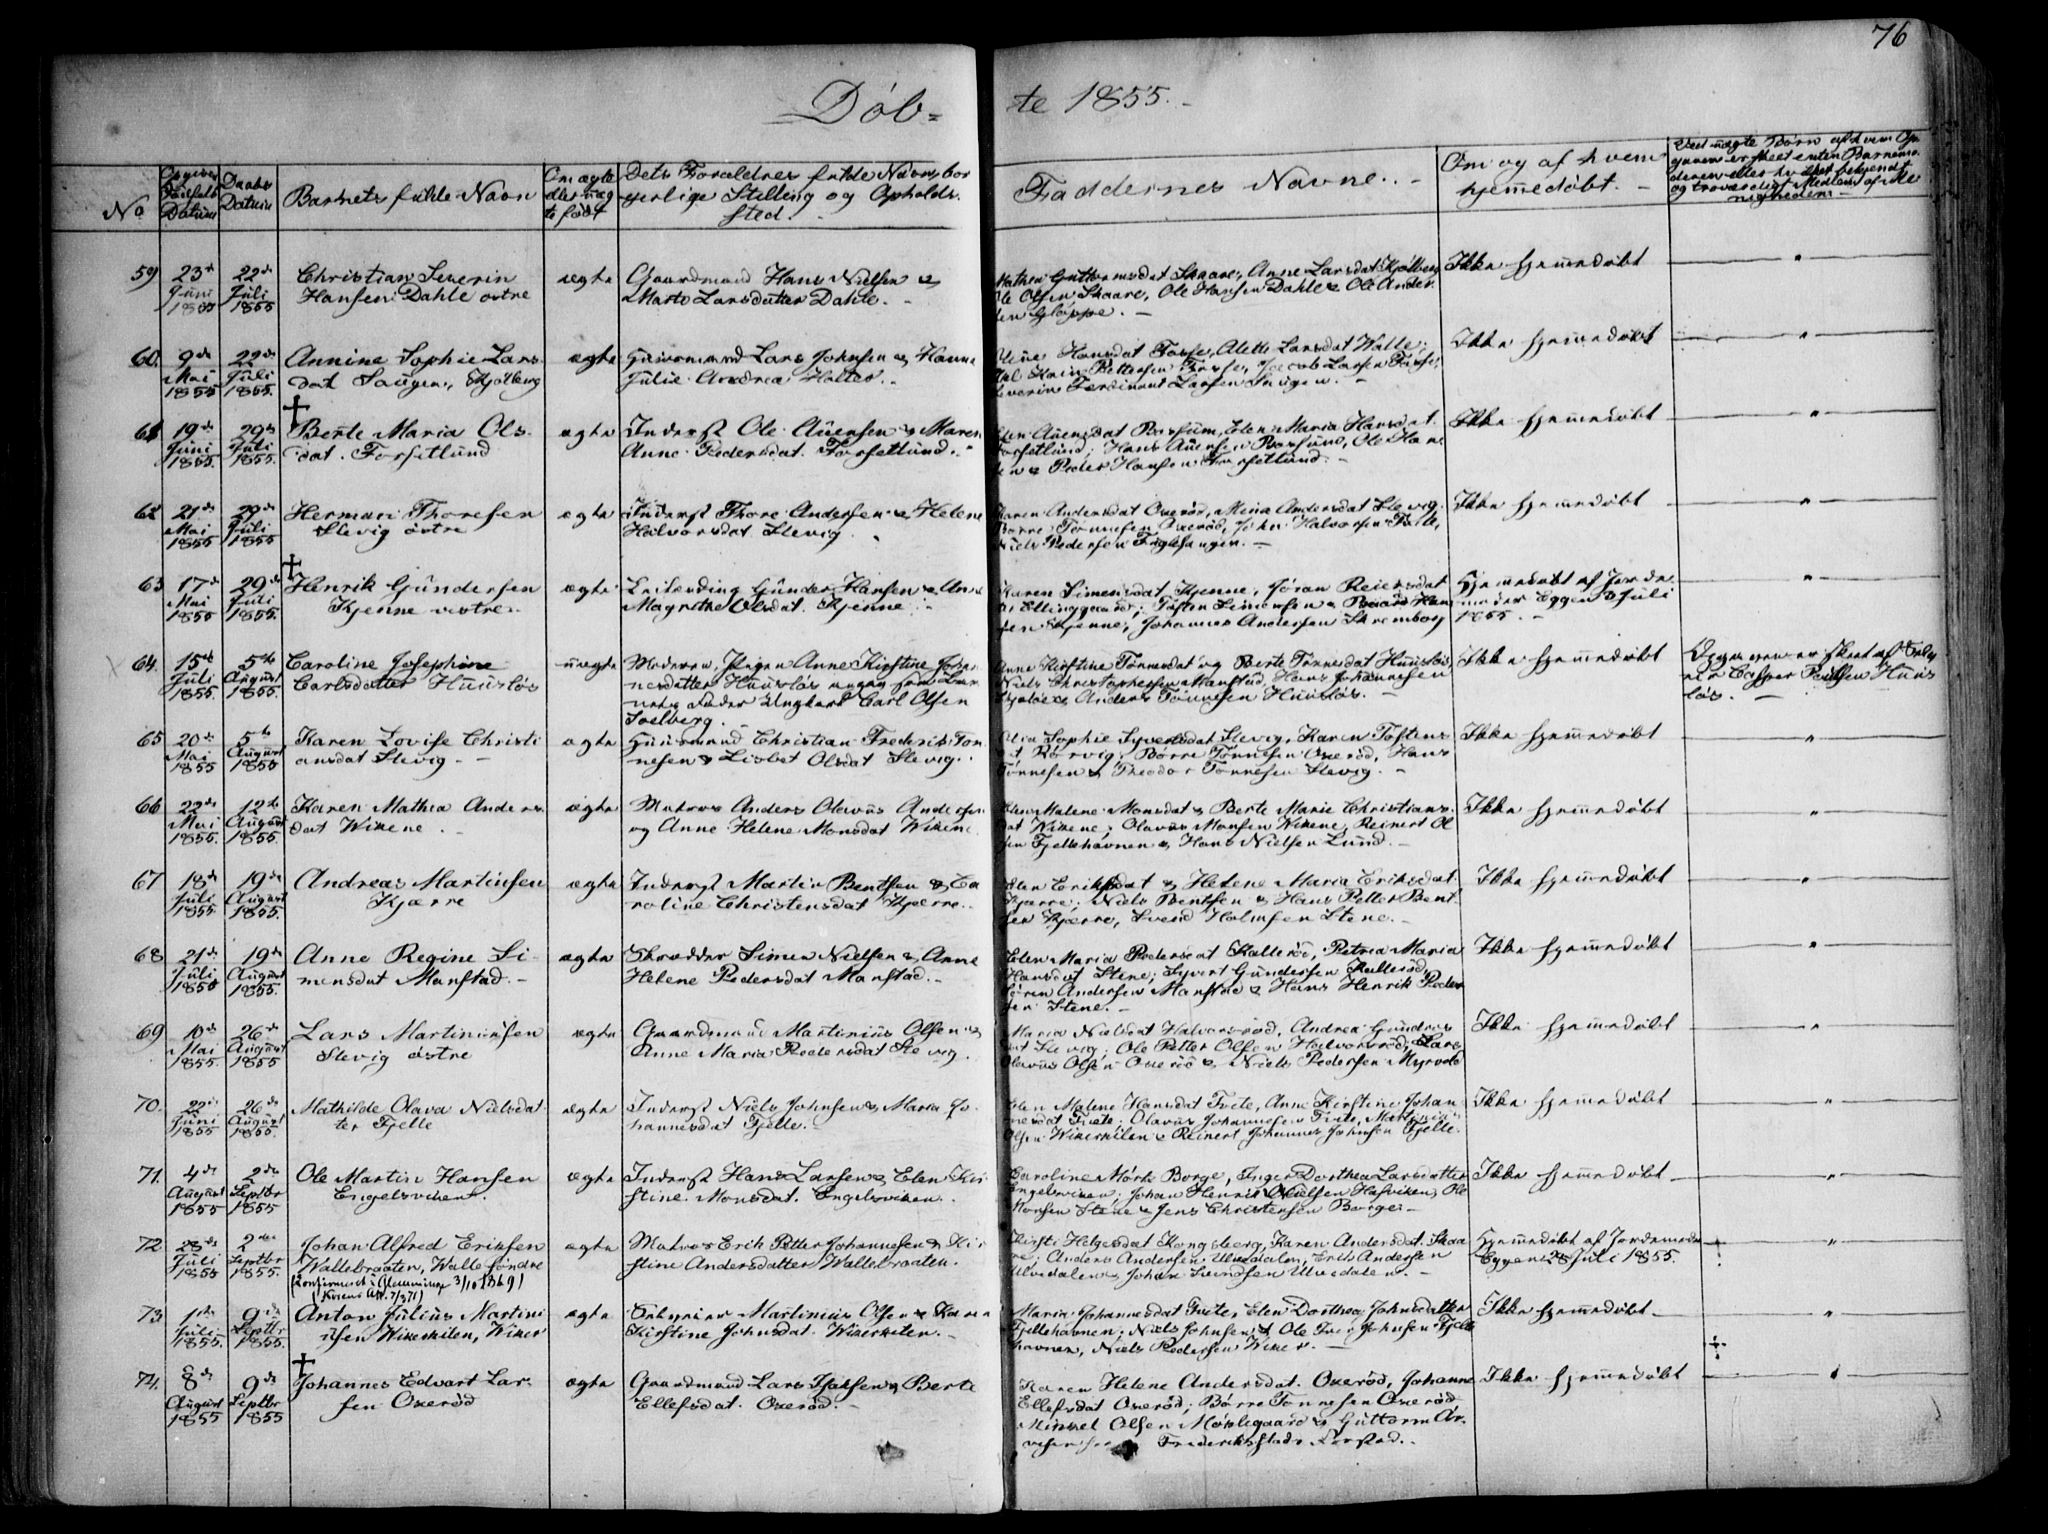 76
Døb-
te 1855.
No
Daabs
Datum
Barnets fulde Navn
Om ægte
født
Dets Forældres fulde Navn, bor
gerlige Stilling og Opholds
sted.
Faddernes Navne.
Om og af hvem
hjemmedøbt.
59
23de
Juni
1855
22de
Juli
1855
Christian Severin
Hansen Dahle østre
ægte
Gaardmand Hans Nielsen &
Marte Larsdatter Dahle.
Anne Larsdat Kjølberg
Ole Olsen Skaare, Ole Hansen Dahle & Ole Ander
sen Gloppe.
Ikke hjemmedøbt
60.
9de
Mai
1855
22de
Juli
1855.
Annine Sophie Lars
dat Saugen, Kjølberg
ægte
Huusmand Lars Johnsen & Hanna
Julie Andrea Halter.
Hansdat Fosse, Alette Larsdat Walle;
Pettersen Fosse, Jacob Larsen Fosse,
Severin Ferdinant Larsen Saugen.
Ikke hjemmedøbt
61
19de
Juni
1855.
29de
Juli
1855.
Berte Maria Ols
dat. Forsetlund
ægte
Inderst Ole Auensen & Maren
Anne Pedersdat. Forsetlund.
Elen Auensdat Rossum, Elen Maria Hansdat
Forsetlund; Hans Auensen Rossum, Ole Han
sen & Peder Hansen Forsetlund.
Ikke hjemmedøbt
62
21de
Mai
1855
29de
Juli
1855
Herman Thoresen
Slevig østre
ægte
Inderst Thore Andersen & Helene
Halvorsdat Slevig.
Karen Andersdat Oxerød, Mina Andersdat Slevig;
Børre Tønnesen Oxerød, John Halvorsen
Niels Pedersen Fuglesangen.
Ikke hjemmedøbt
63
17de
Mai
1855
29de
Juli
1855.
Henrik Gundersen
Kjenne østre.
ægte
Leilænding Gunder Hansen & Anne
Magrethe Olsdat. Kjenne.
Karen Simensdat Kjenne, Jøran Reiersdat
Ellinggaard; Tosten Simensen & Han
sen Kjenne, Johannes Andersen
Hjemmedøbt af Jorde
moder Eggen 3 Juli
1855.
64.
15de
Juli
1855.
5te
August
1855.
Caroline Josephine
Carlsdatter Huusløs
uægte
Moderen, Pigen Anne Kirstine Johan
nesdatter Huusløs angav som Bar
nets Fader Ungkarl Carl Olsen
Soelberg.
Anne Kirstine Tønnesdat og Berte Tønnesdat Huusløs,
Niels Christophersen Manstad, Hans Johannesen
Anders Tønnesen Huusløs.
Ikke hjemmedøbt
Opgaven er skeet af
Casper Poulsen Huus
løs.
65
20de
Mai
1855
5te
August
1855
Karen Lovise Christi
ansdat Slevig.
ægte
Huusmand Christian Frederik Tøn
nesen & Lisbet Olsdat Slevig.
Sophie Syvertsdat Slevig, Karen Tostens
dat Rørvig; Børre Tønnesen Oxerød, Hans
Tønnesen & Theodor Tønnesen Slevig.
Ikke hjemmedøbt
66
22de
Mai
1855.
12te
August
1855.
Karen Mathea Anders
dat Wikene.
ægte
Matros Anders Olavus Andersen
og Anne Helene Monsdat Wikene.
Elen Malene Monsdat & Berte Marie Christians
dat Wikene; Olavus Monsen Wikene, Reinert Ol
sen Fjellehavnen & Hans Nielsen Lund.
Ikke hjemmedøbt
67
18de
Juli
1855
19de
August
1855.
Andreas Martinsen
Kjærre
ægte
Inderst Martin Bentsen & Ca
roline Christensdat Kjærre.
Elen Eriksdat & Helene Maria Eriksdat
Kjærre; Niels Bentsen & Hans Petter Bent
sen Kjærre, Svend Holmsen Stene.
Ikke hjemmedøbt
68
21de
Juli
1855
19de
August
1855.
Anne Regine Si-
mensdat Manstad.
ægte
Skrædder Simen Nielsen & Anne
Helene Pedersdat Manstad.
Elen Maria Pedersdat Kallerød, Petrea Maria
Hansdat Stene; Syvert Gundersen Kallerød,
Søren Andersen Manstad & Hans Henrik Peder
sen Stene.
Ikke hjemmedøbt
69
10de
Mai
1855.
26de
August
1855
Lars Martiniusen
Slevig østre
ægte
Gaardmand Martinius Olsen &
Anne Maria Pedersdat Slevig.
Maria Nielsdat Halvorsrød, Andrea Gundros
dat Slevig; Ole Petter Olsen Halvorsrød, Lars
Olavus Olsen Oxerød & Niels Pedersen Myrvold
Ikke hjemmedøbt
70.
22de
Juni
1855
26de
August
1855.
Mathilde Olava Nielsdat
ter Fjelle
ægte
Inderst Niels Johnsen & Maria Jo
hannesdat Fjelle.
Elen Malene Hansdat Tvete, Anne Kirstine Johan
nesdat Tvete; Olavus Johannesen Tvete, Martinius
Olsen Wikerkilen & Reinert Johannes Johnsen Fjelle.
Ikke hjemmedøbt
71.
4de
August
1855
2de
Septbr
1855
Ole Martin Hansen
Engelsviken.
ægte
Inderst Hans Larsen & Elen Kir
stine Monsdat. Engelsviken.
Caroline Mørk Borge, Inger Dorthea Larsdatter
Engelsviken; Johan Henrik Nielsen Ole
Monsen Stene & Jens Christensen Borge.
Ikke hjemmedøbt
72
28de
Juli
1855
2den
Septbr
1855.
Johan Alfred Eriksen
Wallebraaten, Walle søndre
(Konfirmert i Glemminge 3/10 1869)
ægte
Matros Erik Petter Johannesen & Kir
stine Andersdatter Wallebraaten.
Kirsti Helgesdat Kongsberg, Karen Andersdat. Skaa
re; Anders Andersen Ulvedalen, Erik Andersen
Ulvedalen & Johan Svendsen Ulvedalen.
Hjemmedøbt af Jordemoder
Eggen 28 Juli 1855.
73
1ste
Juli
1855.
9de
Septbr
1855.
Anton Julius Martini
usen Wikerkilen, Wiker
ægte
Martinius Olsen & Karen
Kirstine Johnsdat. Wikerkilen.
Maria Johannesdat Tvete, Elen Dorthea Johnsdatter
Fjellehavnen; Niels Johnsen & Ole Iver Johnsen Fjelle
havnen, Niels Pedersen Wiker.
Ikke hjemmedøbt
74.
8de
August
1855
9de
Septbr
1855
Johannes Edvart Lar-
sen Oxerød
ægte
Gaardmand Lars Isaksen & Berte
Ellefsdat. Oxerød.
Karen Helene Andersdat. Oxerød, Johanne
Ellefsdat Oxerød; Børre Tønnesen Oxerød
Mikkel Olsen Møklegaard & Guttorm Ar-
Frederikstads Forstad.
Ikke hjemmedøbt